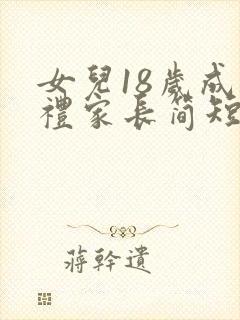 女兒18歲成
禮家長簡短
蔣幹遺